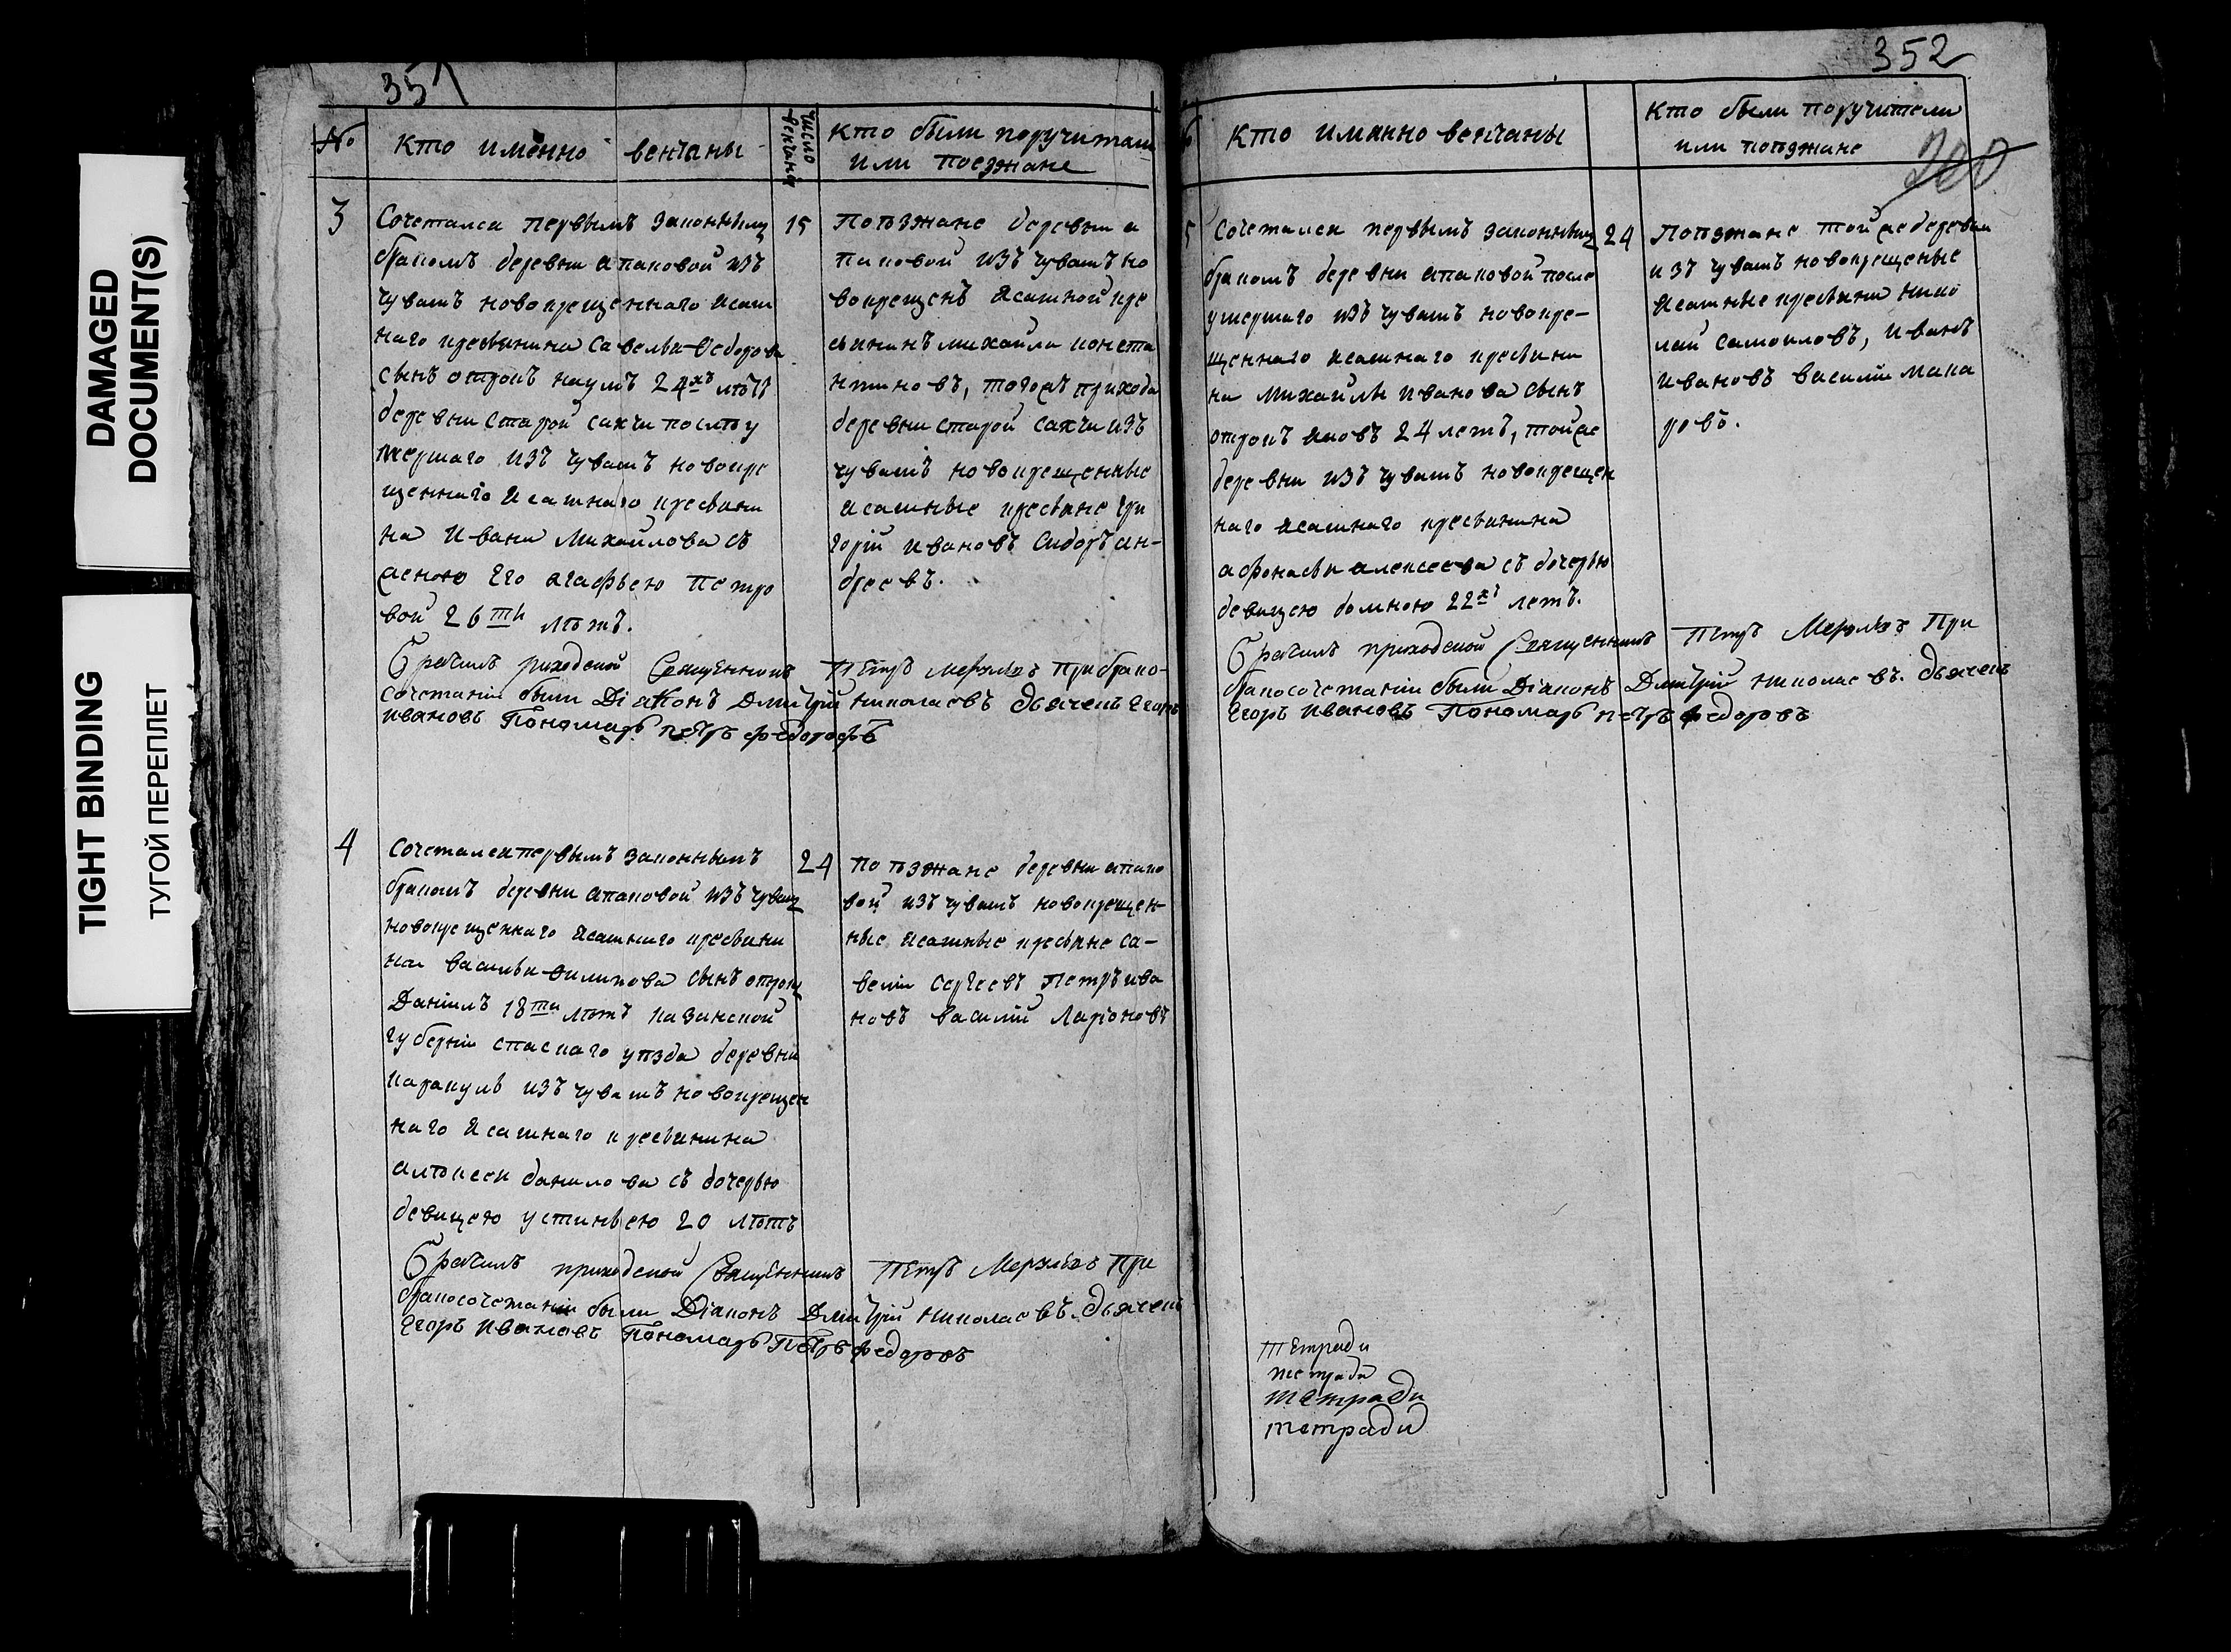 DAMAGED
DOCUMENT(S)
TIGHT BINDING
ТУГОЙ ПЕРЕПЛЕТ
351
№
кто именно венчаны
число венчания
кто были поручители
или поезжане
3
Сочетался первымъ законнымъ
бракомъ деревни апаковой изъ
чувашъ новокрещеннаго ясаш
наго крестьянина Савелья Федорова
сынъ отрокъ наумъ 24хъ лѣтъ
деревни старой сахчи послѣ у
мершаго изъ чувашъ новокре
щеннаго ясашнаго крестьяни
на Ивана Михайлова съ
женою Его агафьею Петро
вой 26ти лѣтъ.
15
Поѣзжане деревни а
паковой изъ чувашъ но
вокрещенъ ясашной кре
стьянинъ михайла конста
нтиновъ, тогожъ прихода
деревни старой сахчи изъ
чувашъ новокрещенные
ясашные крестьяне гри
горій ивановъ Сидоръ ан-
дреевъ.
Брачилъ приходской Священникъ Петръ при брако-
сочетаніи были Діаконъ Дмитрій николаевъ дьячекъ Егоръ
ивановъ Пономарь петръ федоровъ
4
Сочетался первымъ законнымъ
бракомъ деревни апаковой изъ чувашъ
новокрещеннаго ясашнаго крестьяни
на василья филипова сынъ отрокъ
Даніилъ 18ти лѣтъ казанской
губерніи спаскаго уѣзда деревни
каракуль изъ чувашъ новокрещен
наго ясашнаго крестьянина
алѣксея данилова съ дочерью
девицею устиньею 20 лѣтъ
24
поѣзжане деревни апако
вой изъ чувашъ новокрещен-
ные ясашные крестьяне са-
велій сергеевъ Петръ ива
новъ василій Ларіоновъ
Брачилъ приходской Священникъ Петръ При
бракосочетаніи были Діаконъ Дмитрій николаевъ. дьячекъ
Егоръ Ивановъ Пономарь Петръ федоровъ
352
200
кто иманно венчаны
кто были поручители
или поѣзжане
5
Сочетался первымъ законнымъ
бракомъ деревни апаковой после
умершаго изъ чувашъ новокре-
щеннаго ясашнаго крестьяни
на михайлы иванова сынъ
отрокъ яковъ 24 летъ, тойже
деревни изъ чувашъ новокрещен
наго ясашнаго крестьянина
афонасья алексеева съ дочерью
девицею домною 22хъ летъ.
24
Поѣзжане тойже деревни
изъ чувашъ новокрещеные
ясашные крестьяни нико
лай самоиловъ, иванъ
ивановъ василій мака
ровъ.
Брачилъ приходской Священникъ Петръ При
бракосочетаніи были Діаконъ Дмитрій николаевъ. дьячекъ
Егоръ ивановъ Пономарь петръ федоровъ
тетради
тетради
тетради
тетради